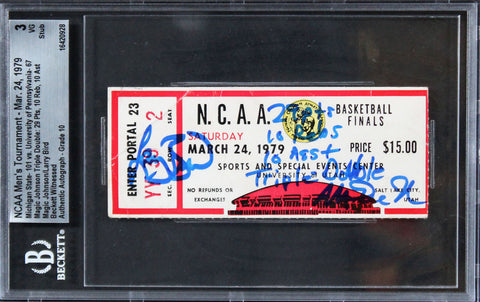 3
VG
Stub
16420928
NCAA Men's Tournament - Mar. 24, 1979
Michigan State- 101 vs. University of Pennsylvania- 67
Magic Johnson Triple Double: 29 Pts, 10 Reb, 10 Ast
Magic Johnson/Larry Bird
Beckett Witnessed
Authentic Autograph - Grade 10
BECKETT
ENTER PORTAL 23
YY 39 2
SEC. ROW SEAT
N.C.A.A. BASKETBALL
FINALS
SATURDAY
MARCH 24, 1979
PRICE $15.00
SPORTS and SPECIAL EVENTS CENTER
UNIVERSITY UTAH
NO REFUNDS OR
EXCHANGES
SALT LAKE CITY,
UTAH
29 pts
10 Rebs
10 Asst
Triple Double